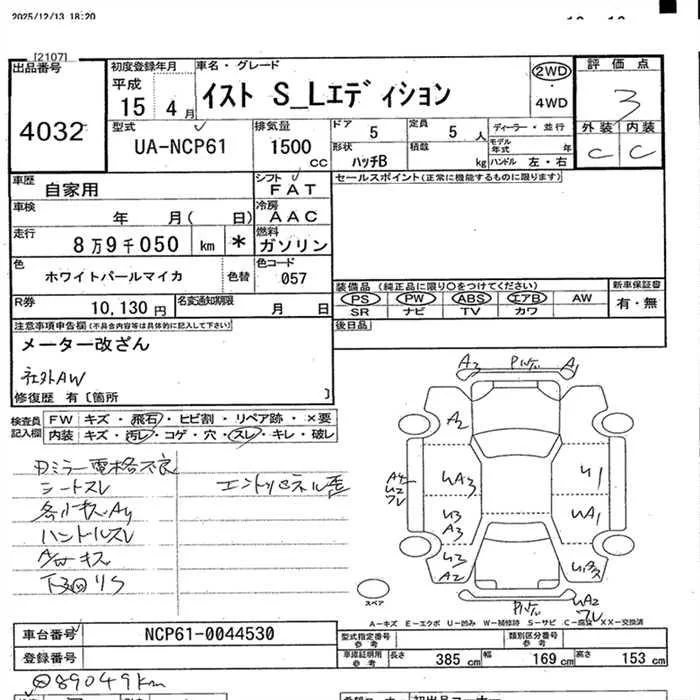 2025/12/13 18:20
[2107]
出品番号
4032
初度登録年月
平成
15 4月
車名・グレード
イスト S_Lエディション
2WD
・
4WD
評価点
3
外装 内装
C C
型式
UA-NCP61
排気量
1500 cc
ドア
5
定員
5 人
形状
ハッチB
積載
kg
ディーラー・並行
モデル年式 年
ハンドル 左・右
車歴
自家用
シフト
FAT
車検
年 月( 日)
冷房
AAC
走行
8万9千050 km *
燃料
ガソリン
色
ホワイトパールマイカ
色替
色コード
057
R券
10,130円
名変通知期限
月 日
セールスポイント(正常に機能するものに限ります)
装備品 (純正品に限り○をつけてください)
PS PW ABS エアB AW
SR ナビ TV カワ
新車保証書
有・無
後日品
注意事項申告欄(不具合内容等は具体的に記入して下さい)
メーター改ざん
社外AW
修復歴 有[箇所 ]
検査員記入欄
FW キズ・飛石・ヒビ割・リペア跡・×要
内装 キズ・汚レ・コゲ・穴・スレ・キレ・破レ
Dミラー電格不良
シートスレ
ハンドルスレ
A/Wキズ
A3 A1
A2
A4
U2
UA3
U3
A3
U3
A2
U1
UA1
UA2
スペア
A-キズ E-エクボ U-凹み W-補修跡 S-サビ C-腐食 XX-交換済
車台番号
NCP61-0044530
登録番号
型式指定番号
参考
類別区分番号
参考
車庫証明用
参考
長さ 385 cm
幅 169 cm
高さ 153 cm
89049km